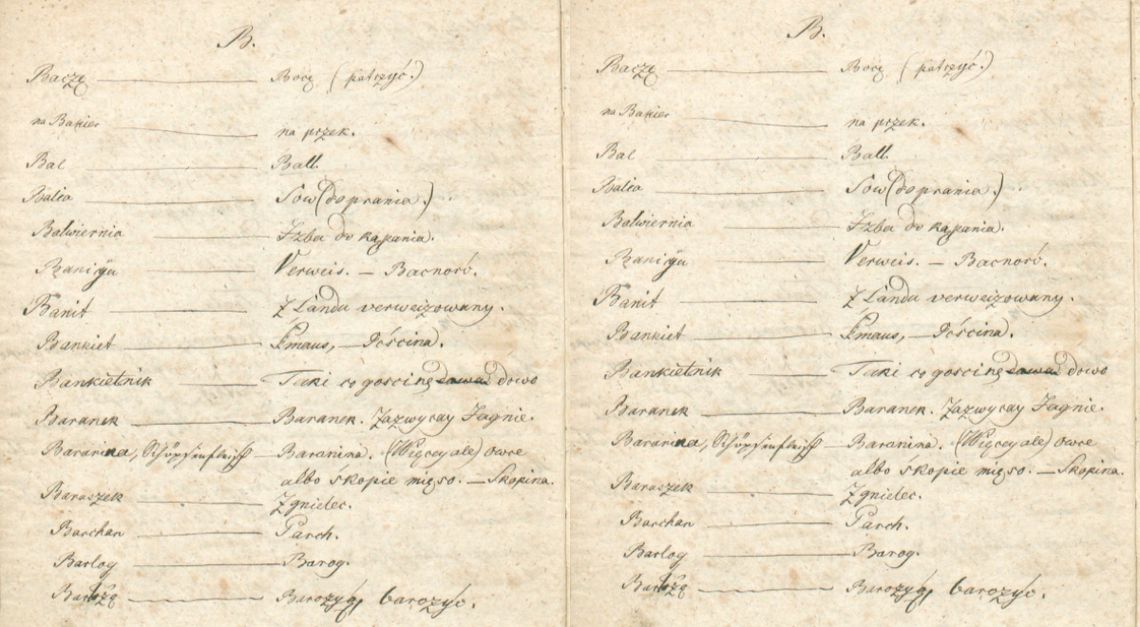 B.
Baczę — Bocę (patrzyć.)
na Bakier — na przek.
Bal — Ball.
Balia — Sow (do prania.)
Balwiernia — Izba do kąpania.
Banicya — Verweis. — Bacność.
Banit — Z Landu verweizowany.
Bankiet — Emaus, — Gościna.
Bankietnik — Taki co gościnę dowo
Baranek — Baranek. Zazwyczay Jagnie.
Baranina, Schöpsenfleisch — Baranina. (Więcy ale) owce
albo skopie mięso. — Skopina.
Baraszek — Zgnielec.
Barchan — Parch.
Barlog — Barog.
Barłożę — barożyć.
B.
Baczę — Bocę (patrzyć.)
na Bakier — na przek.
Bal — Ball.
Balia — Sow (do prania.)
Balwiernia — Izba do kąpania.
Banicya — Verweis. — Bacność.
Banit — Z Landu verweizowany.
Bankiet — Emaus, — Gościna.
Bankietnik — Taki co gościnę dowo
Baranek — Baranek. Zazwyczay Jagnie.
Baranina, Schöpsenfleisch — Baranina. (Więcy ale) owce
albo skopie mięso. — Skopina.
Baraszek — Zgnielec.
Barchan — Parch.
Barlog — Barog.
Barłożę — barożyć.